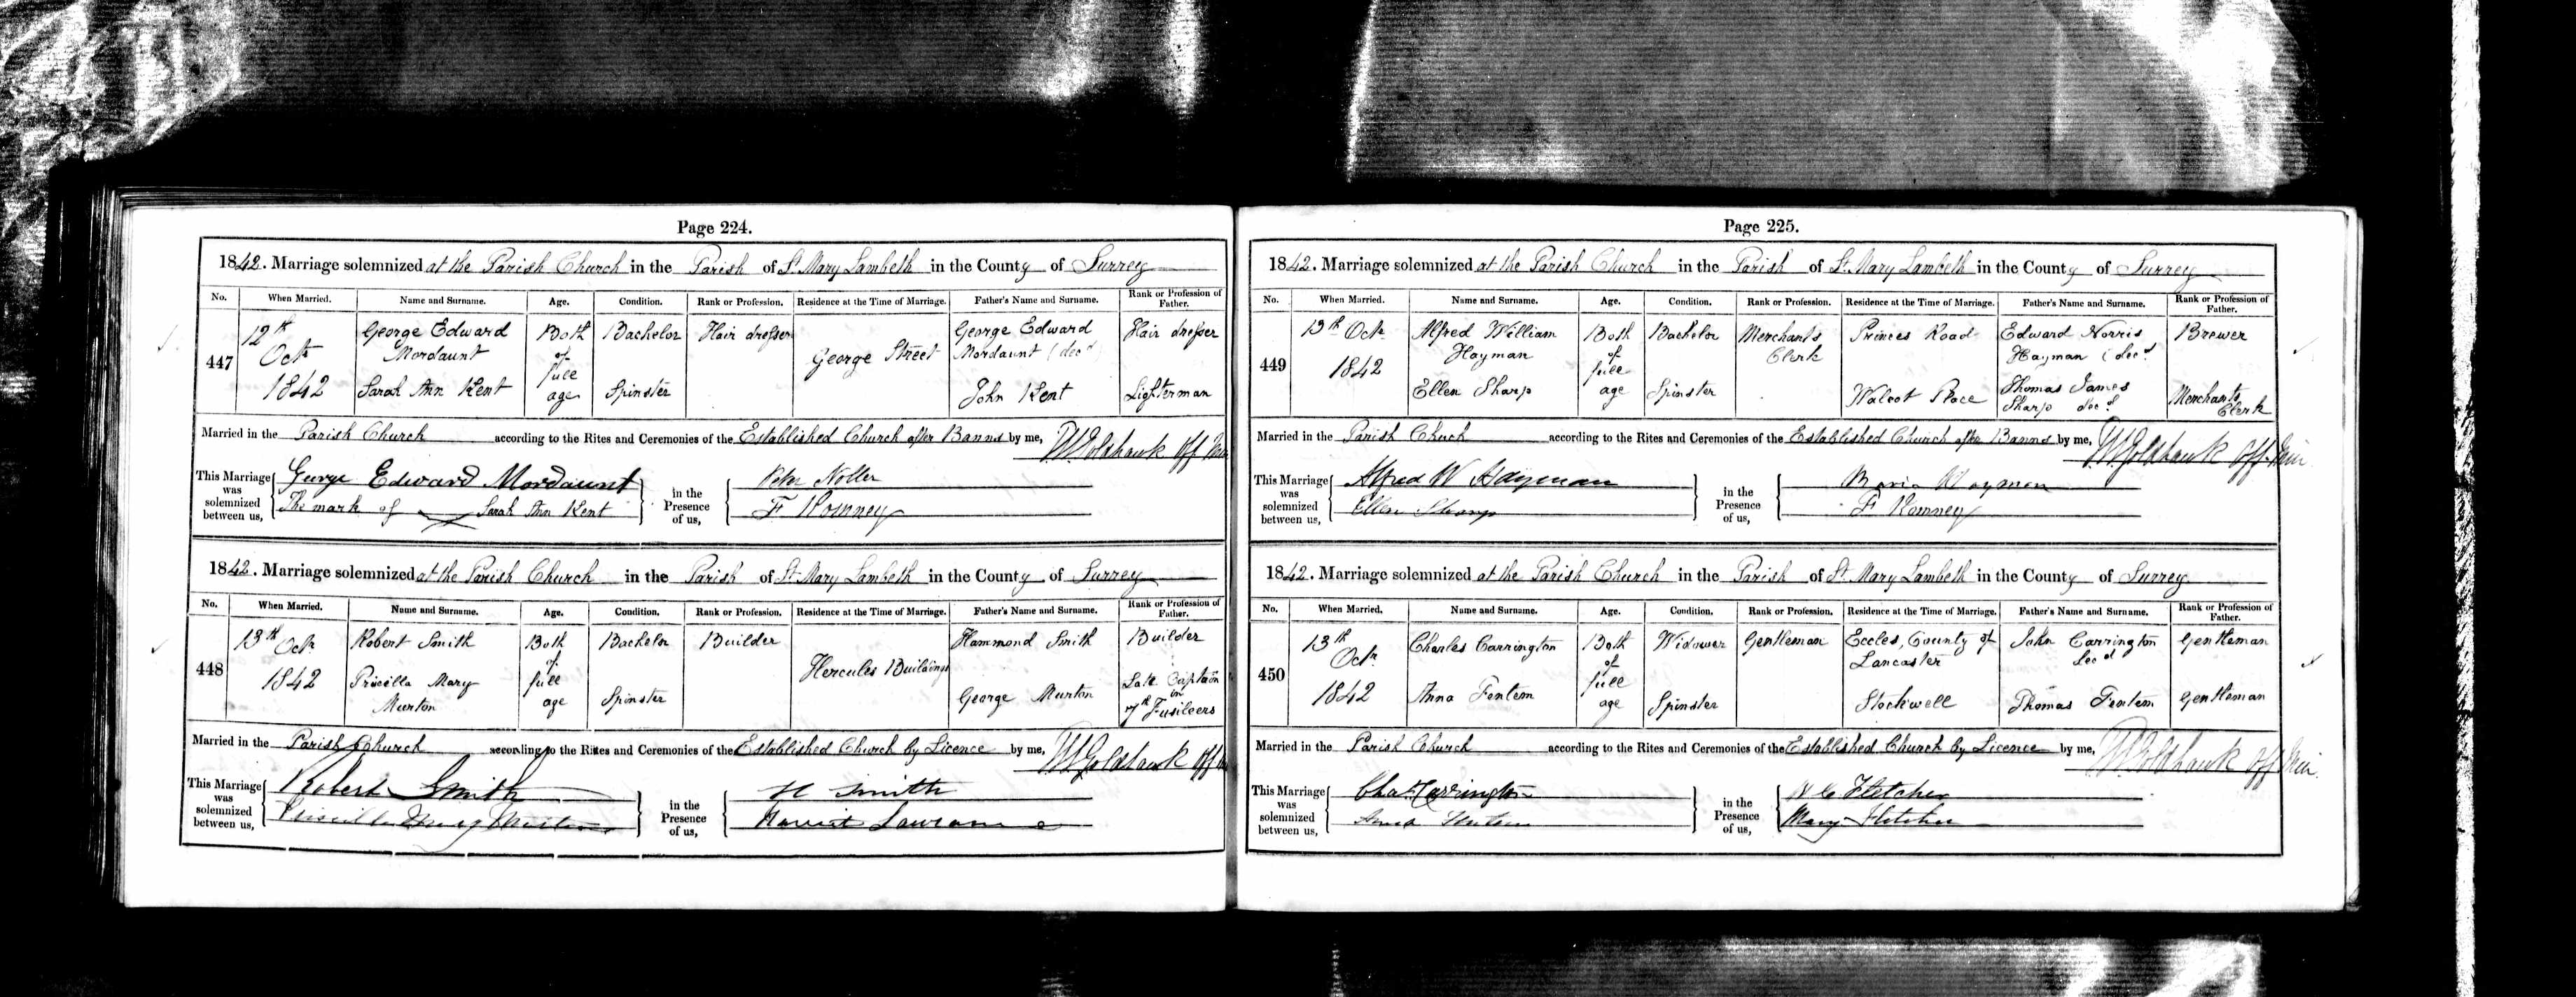 Page 224.
1842. Marriage solemnized at the Parish Church in the Parish of St. Mary Lambeth in the County of Surrey
No. When Married. Name and Surname. Age. Condition. Rank or Profession. Residence at the Time of Marriage. Father's Name and Surname. Rank or Profession of Father.
447 12th Octr 1842 George Edward Mordaunt Both of full age Bachelor Hair dresser George Street George Edward Mordaunt (decd Hair dresser
Sarah Ann Kent Spinster John Kent Lighterman
Married in the Parish Church according to the Rites and Ceremonies of the Established Church after Banns by me, W Goldhawk Off Min
This Marriage was solemnized between us, George Edward Mordaunt
The mark of X Sarah Ann Kent
in the Presence of us, Peter Noller
F Romney
1842. Marriage solemnized at the Parish Church in the Parish of St. Mary Lambeth in the County of Surrey
No. When Married. Name and Surname. Age. Condition. Rank or Profession. Residence at the Time of Marriage. Father's Name and Surname. Rank or Profession of Father.
448 13th Octr 1842 Robert Smith Both of full age Bachelor Builder Hercules Buildings Hammond Smith Builder
Priscilla Mary Murton Spinster George Murton Late Captain in 7th Fusileers
Married in the Parish Church according to the Rites and Ceremonies of the Established Church by Licence by me, W Goldhawk Off
This Marriage was solemnized between us, Robert Smith
Priscilla Mary Murton
in the Presence of us, H Smith
Harriet Lawrance
Page 225.
1842. Marriage solemnized at the Parish Church in the Parish of St. Mary Lambeth in the County of Surrey
No. When Married. Name and Surname. Age. Condition. Rank or Profession. Residence at the Time of Marriage. Father's Name and Surname. Rank or Profession of Father.
449 13th Octr 1842 Alfred William Hayman Both of full age Bachelor Merchants Clerk Princes Road Edward Norris Hayman (decd Brewer
Ellen Sharp Spinster Walcot Place Thomas James Sharp decd Merchants Clerk
Married in the Parish Church according to the Rites and Ceremonies of the Established Church after Banns by me, W Goldhawk Off Min
This Marriage was solemnized between us, Alfred W Hayman
Ellen Sharp
in the Presence of us, Maria Wayman
F Romney
1842. Marriage solemnized at the Parish Church in the Parish of St. Mary Lambeth in the County of Surrey
No. When Married. Name and Surname. Age. Condition. Rank or Profession. Residence at the Time of Marriage. Father's Name and Surname. Rank or Profession of Father.
450 13th Octr 1842 Charles Carrington Both of full age Widower Gentleman Eccles, County of Lancaster John Carrington decd Gentleman
Anna Fentem Spinster Stockwell Thomas Fentem Gentleman
Married in the Parish Church according to the Rites and Ceremonies of the Established Church by Licence by me, W Goldhawk Off Min.
This Marriage was solemnized between us, Chas. Carrington
Anna Fentem
in the Presence of us, Fletcher
Mary Fletcher